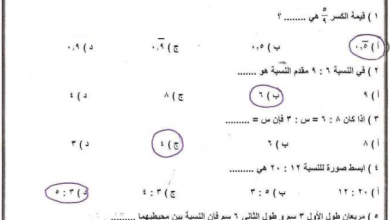 ١ ) قيمة الكسر ٥/٩ هي ........ ؟
أ ) ٠,٥̅ ب ) ٠,٥ ج ) ٠,٩̅ د ) ٠,٩
٢ ) في النسبة ٦ : ٩ مقدم النسبة هو ........
أ ) ٩ ب ) ٦ ج ) ٨ د ) ٤
٣ ) اذا كان ٨ : ٦ = س : ٣ فإن س = ........
أ ) ٨ ب ) ٦ ج ) ٤ د ) ٣
٤ ) ابسط صورة للنسبة ١٢ : ٢٠ هي ........
أ ) ١٢ : ٢٠ ب ) ٥ : ٣ ج ) ٣ : ٤ د ) ٣ : ٥
٥ ) مربعان طول الأول ٣ سم و طول الثاني ٦ سم فإن النسبة بين محيطيهما